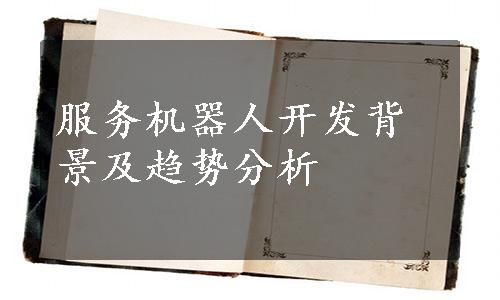 服务机器人开发背
景及趋势分析